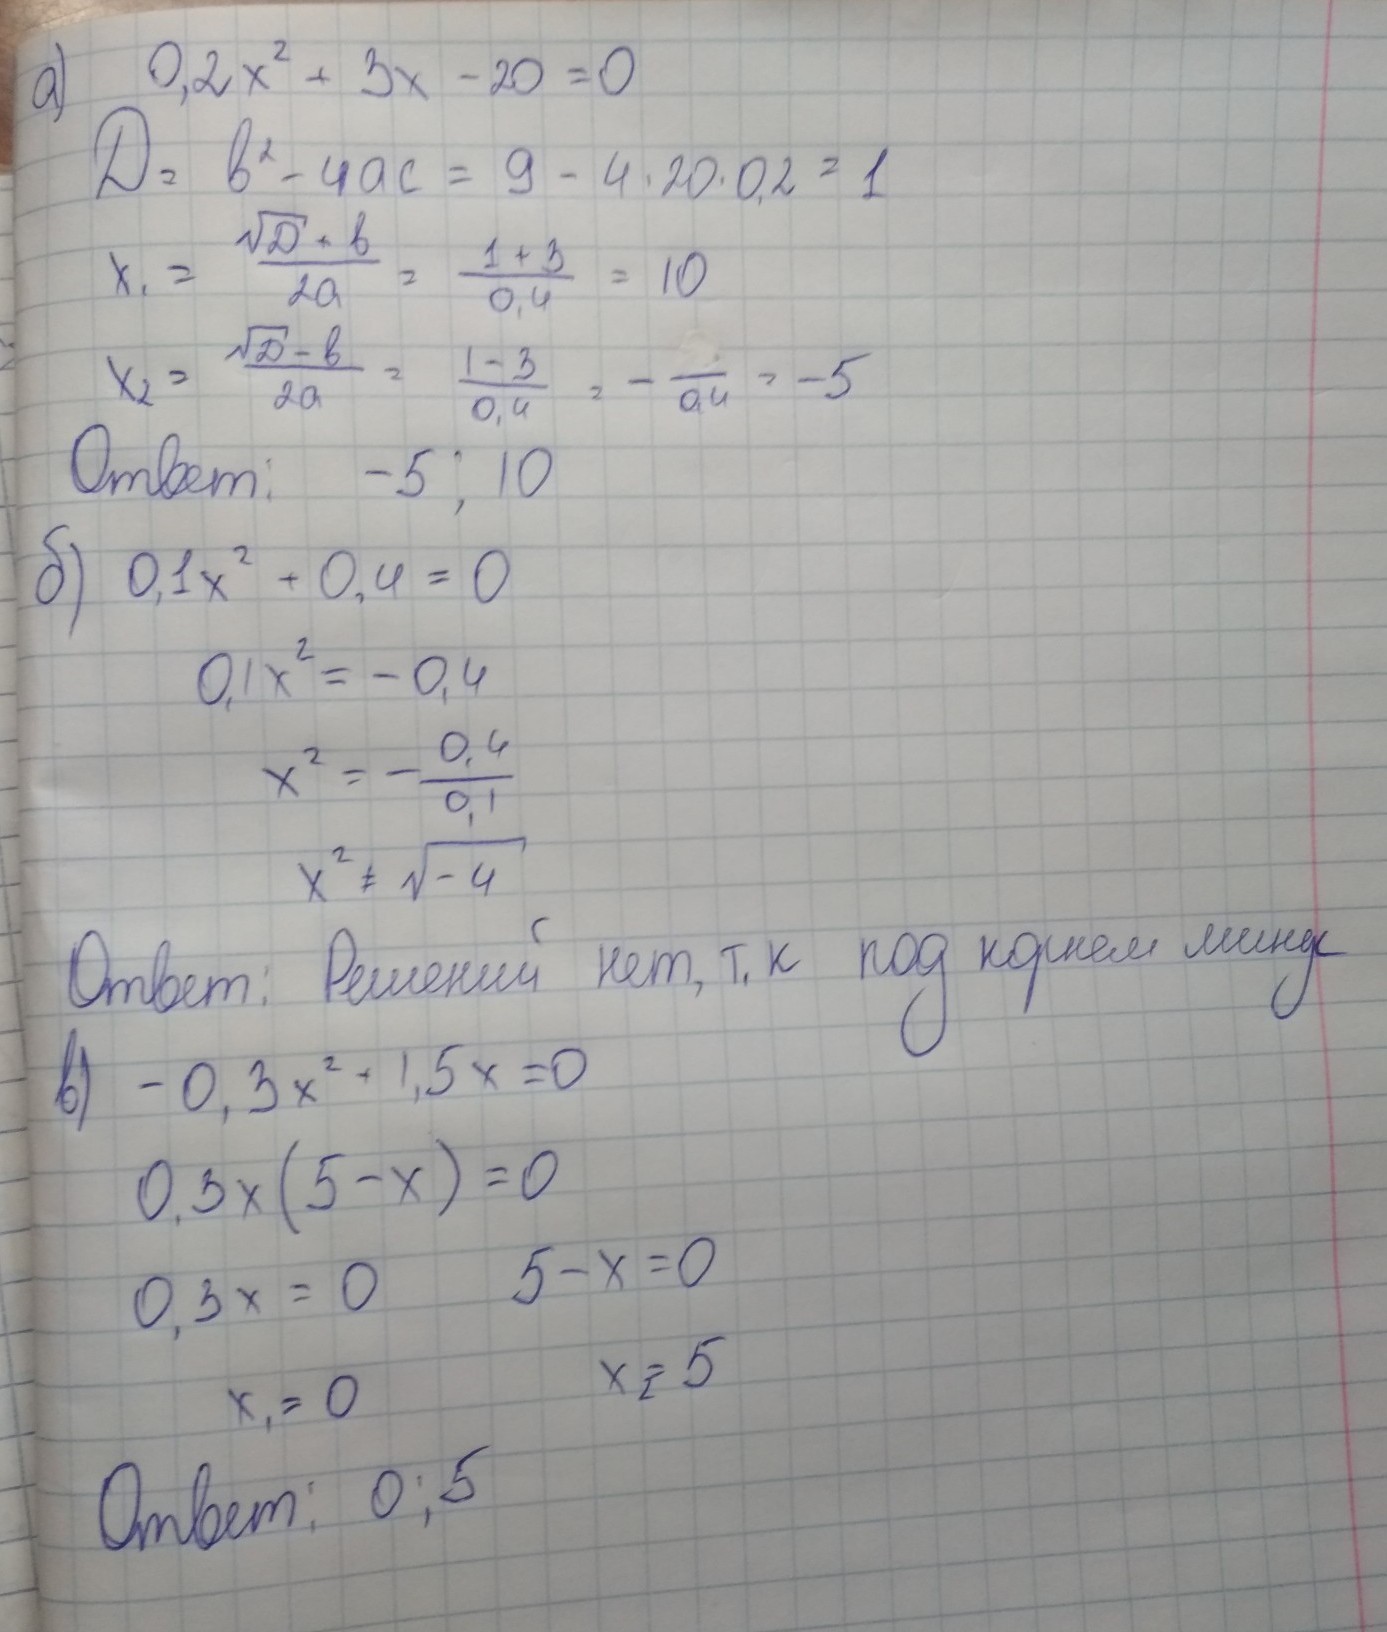 а) 0,2x² + 3x - 20 = 0
D = b² - 4ac = 9 - 4·20·0,2 = 1
x₁ = (√D + b)/2a = (1 + 3)/0,4 = 10
x₂ = (√D - b)/2a = (1 - 3)/0,4 = - /0,4 = -5
Ответ: -5; 10
б) 0,1x² + 0,4 = 0
0,1x² = -0,4
x² = - 0,4/0,1
x² ≠ √-4
Ответ: Решений нет, т.к под корнем минус
в) -0,3x² + 1,5x = 0
0,3x(5 - x) = 0
0,3x = 0 5 - x = 0
x₁ = 0 x₂ = 5
Ответ: 0; 5